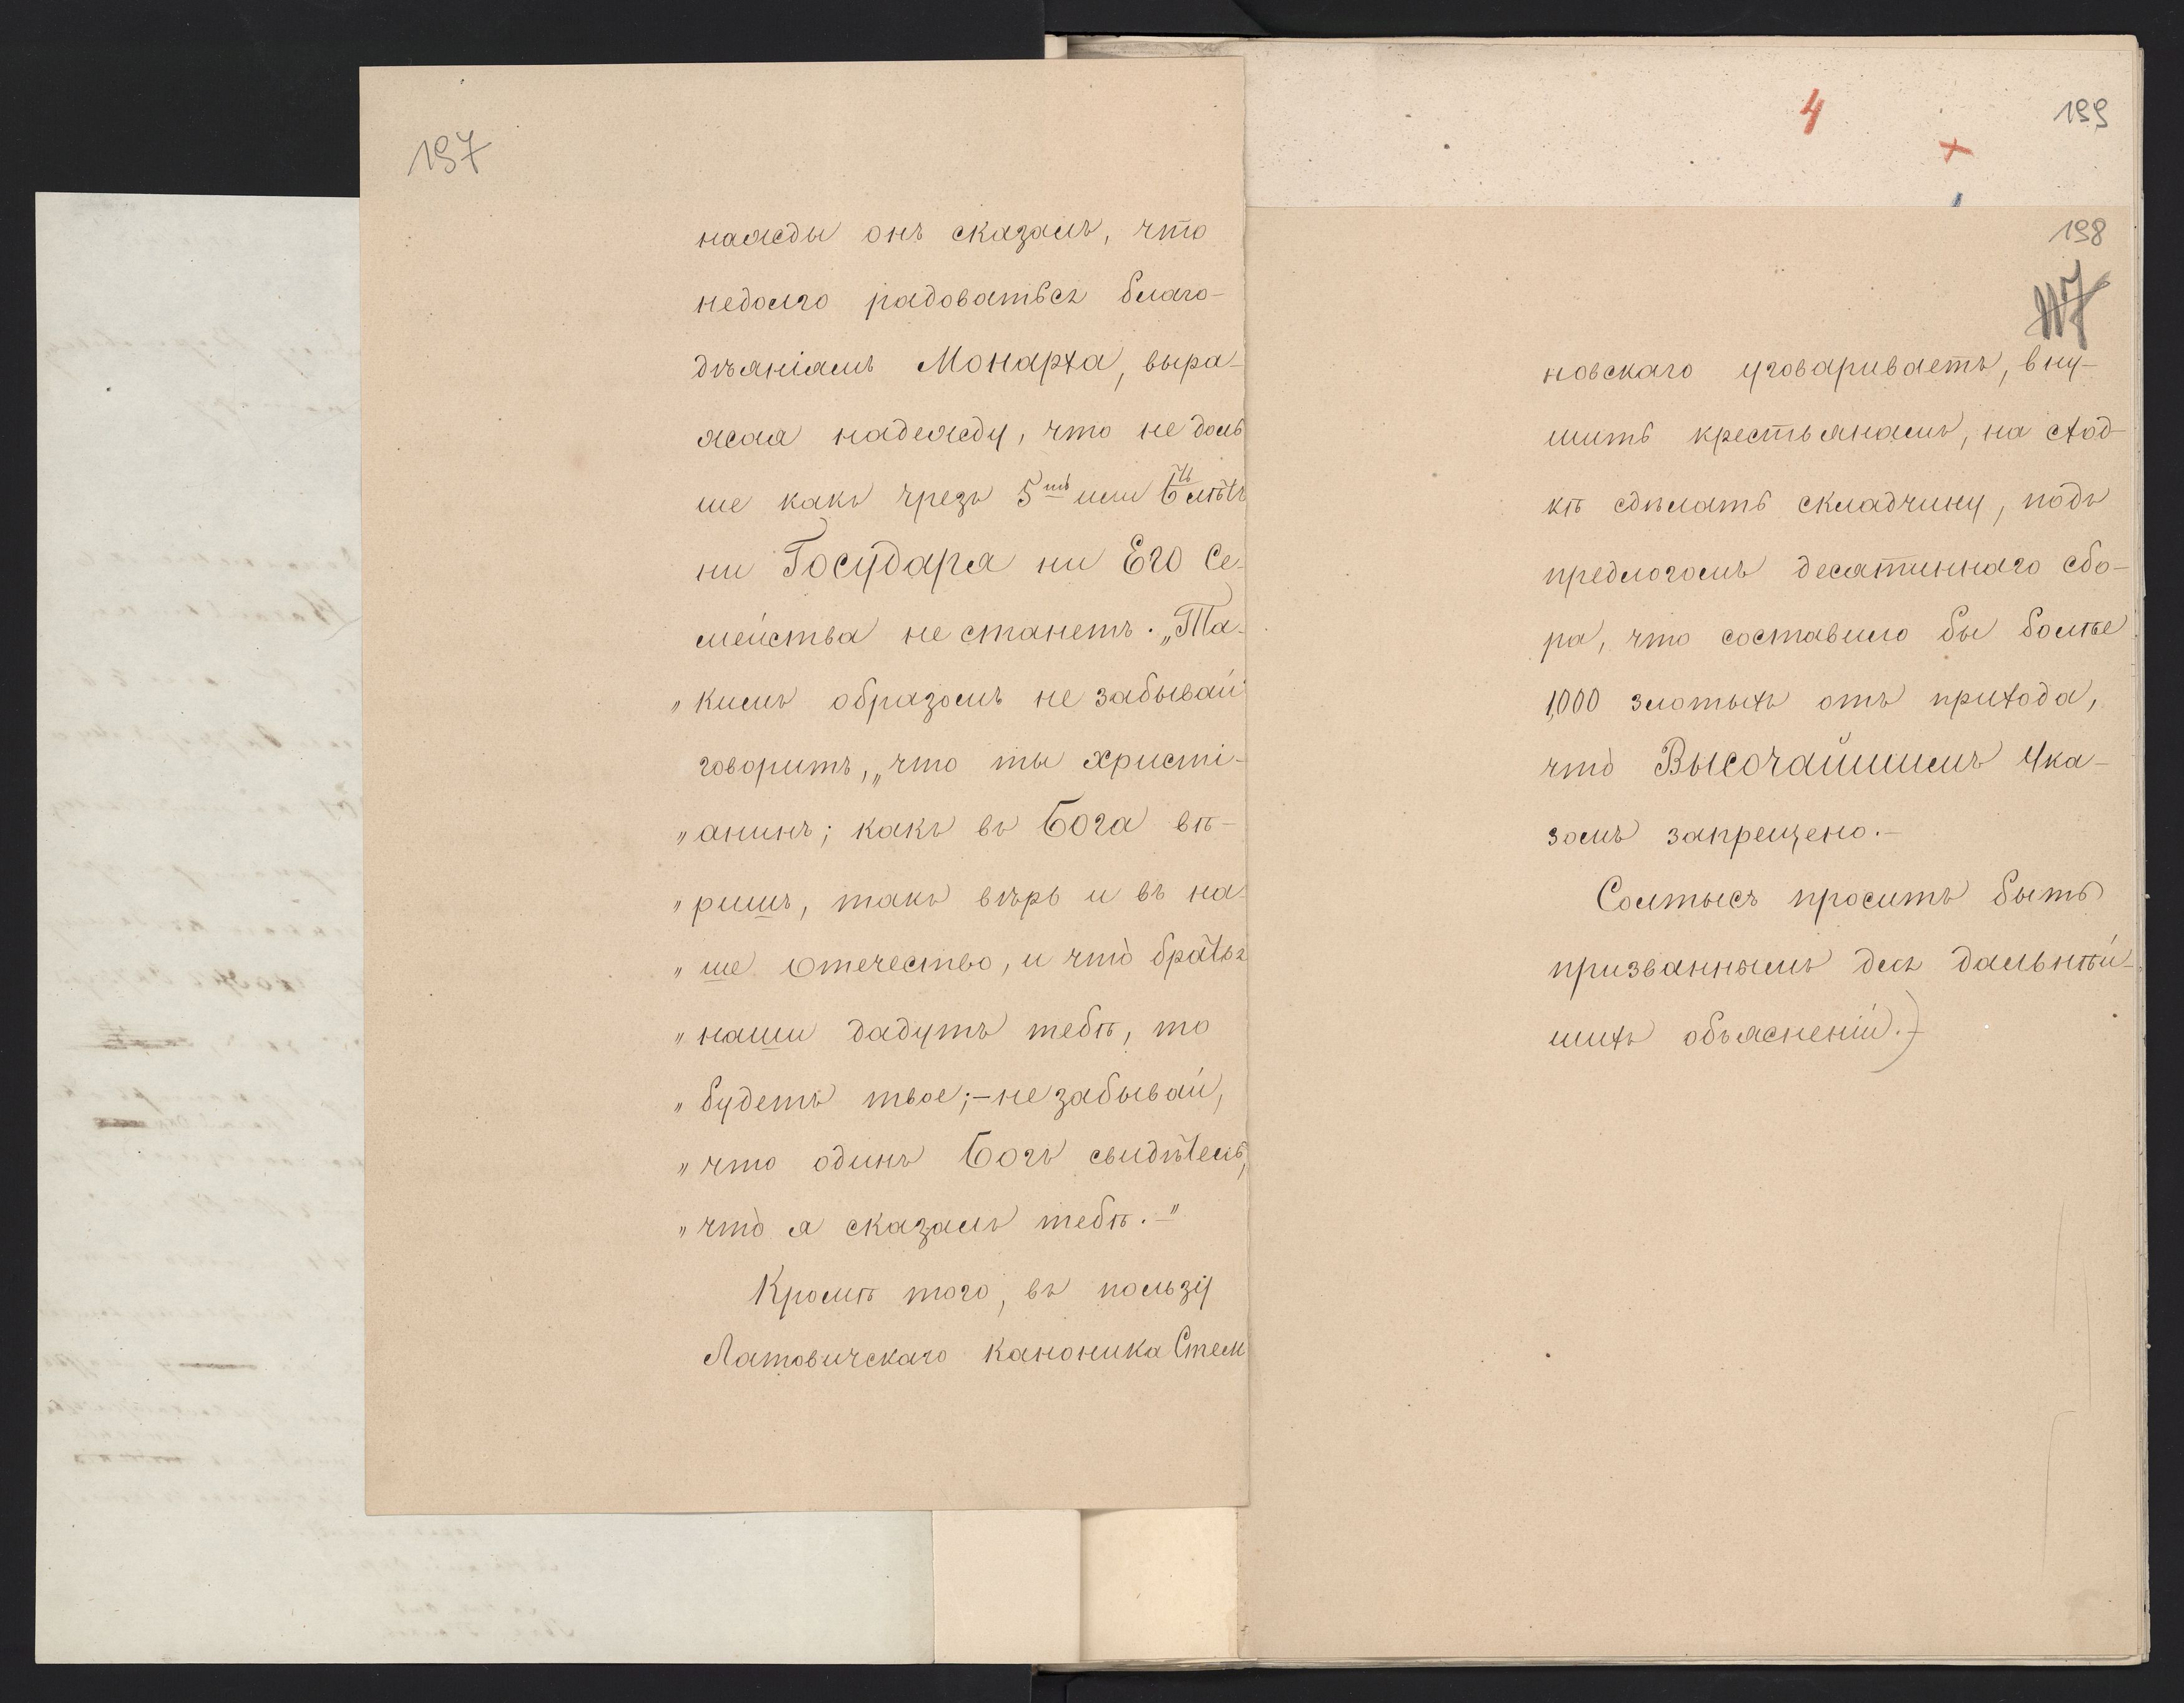 197
нажды онъ сказалъ, что
недолго радоваться благо-
дѣяніямъ Монарха, выра-
жая надежду, что не доль
ше какъ чрезъ 5ть или 6ть лѣтъ
ни Государя ни Его Се-
мейства не станетъ. „Та-
„кимъ образомъ не забывай"
говоритъ, „что ты христі-
„анинъ; какъ въ Бога вѣ-
„ришъ, такъ вѣрь и въ на-
„ше Отечество, и что̀ братья
„наши дадутъ тебѣ, то
„будетъ твое;—не забывай,
„что одинъ Богъ свидѣтель,
„что̀ я сказалъ тебѣ.—"
Кромѣ того, въ пользу
Латовичскаго каноника Стем
4
199
198
новскаго уговариваетъ, вну-
шить крестьянамъ, на сход-
кѣ сдѣлать складчину, подъ
предлогомъ десятиннаго сбо-
ра, что составило бы болѣе
1,000 злотыхъ отъ прихода,
что̀ Высочайшимъ Ука-
зомъ запрещено.—
Солтысъ проситъ быть
призваннымъ для дальнѣй-
шихъ объясненій.—)